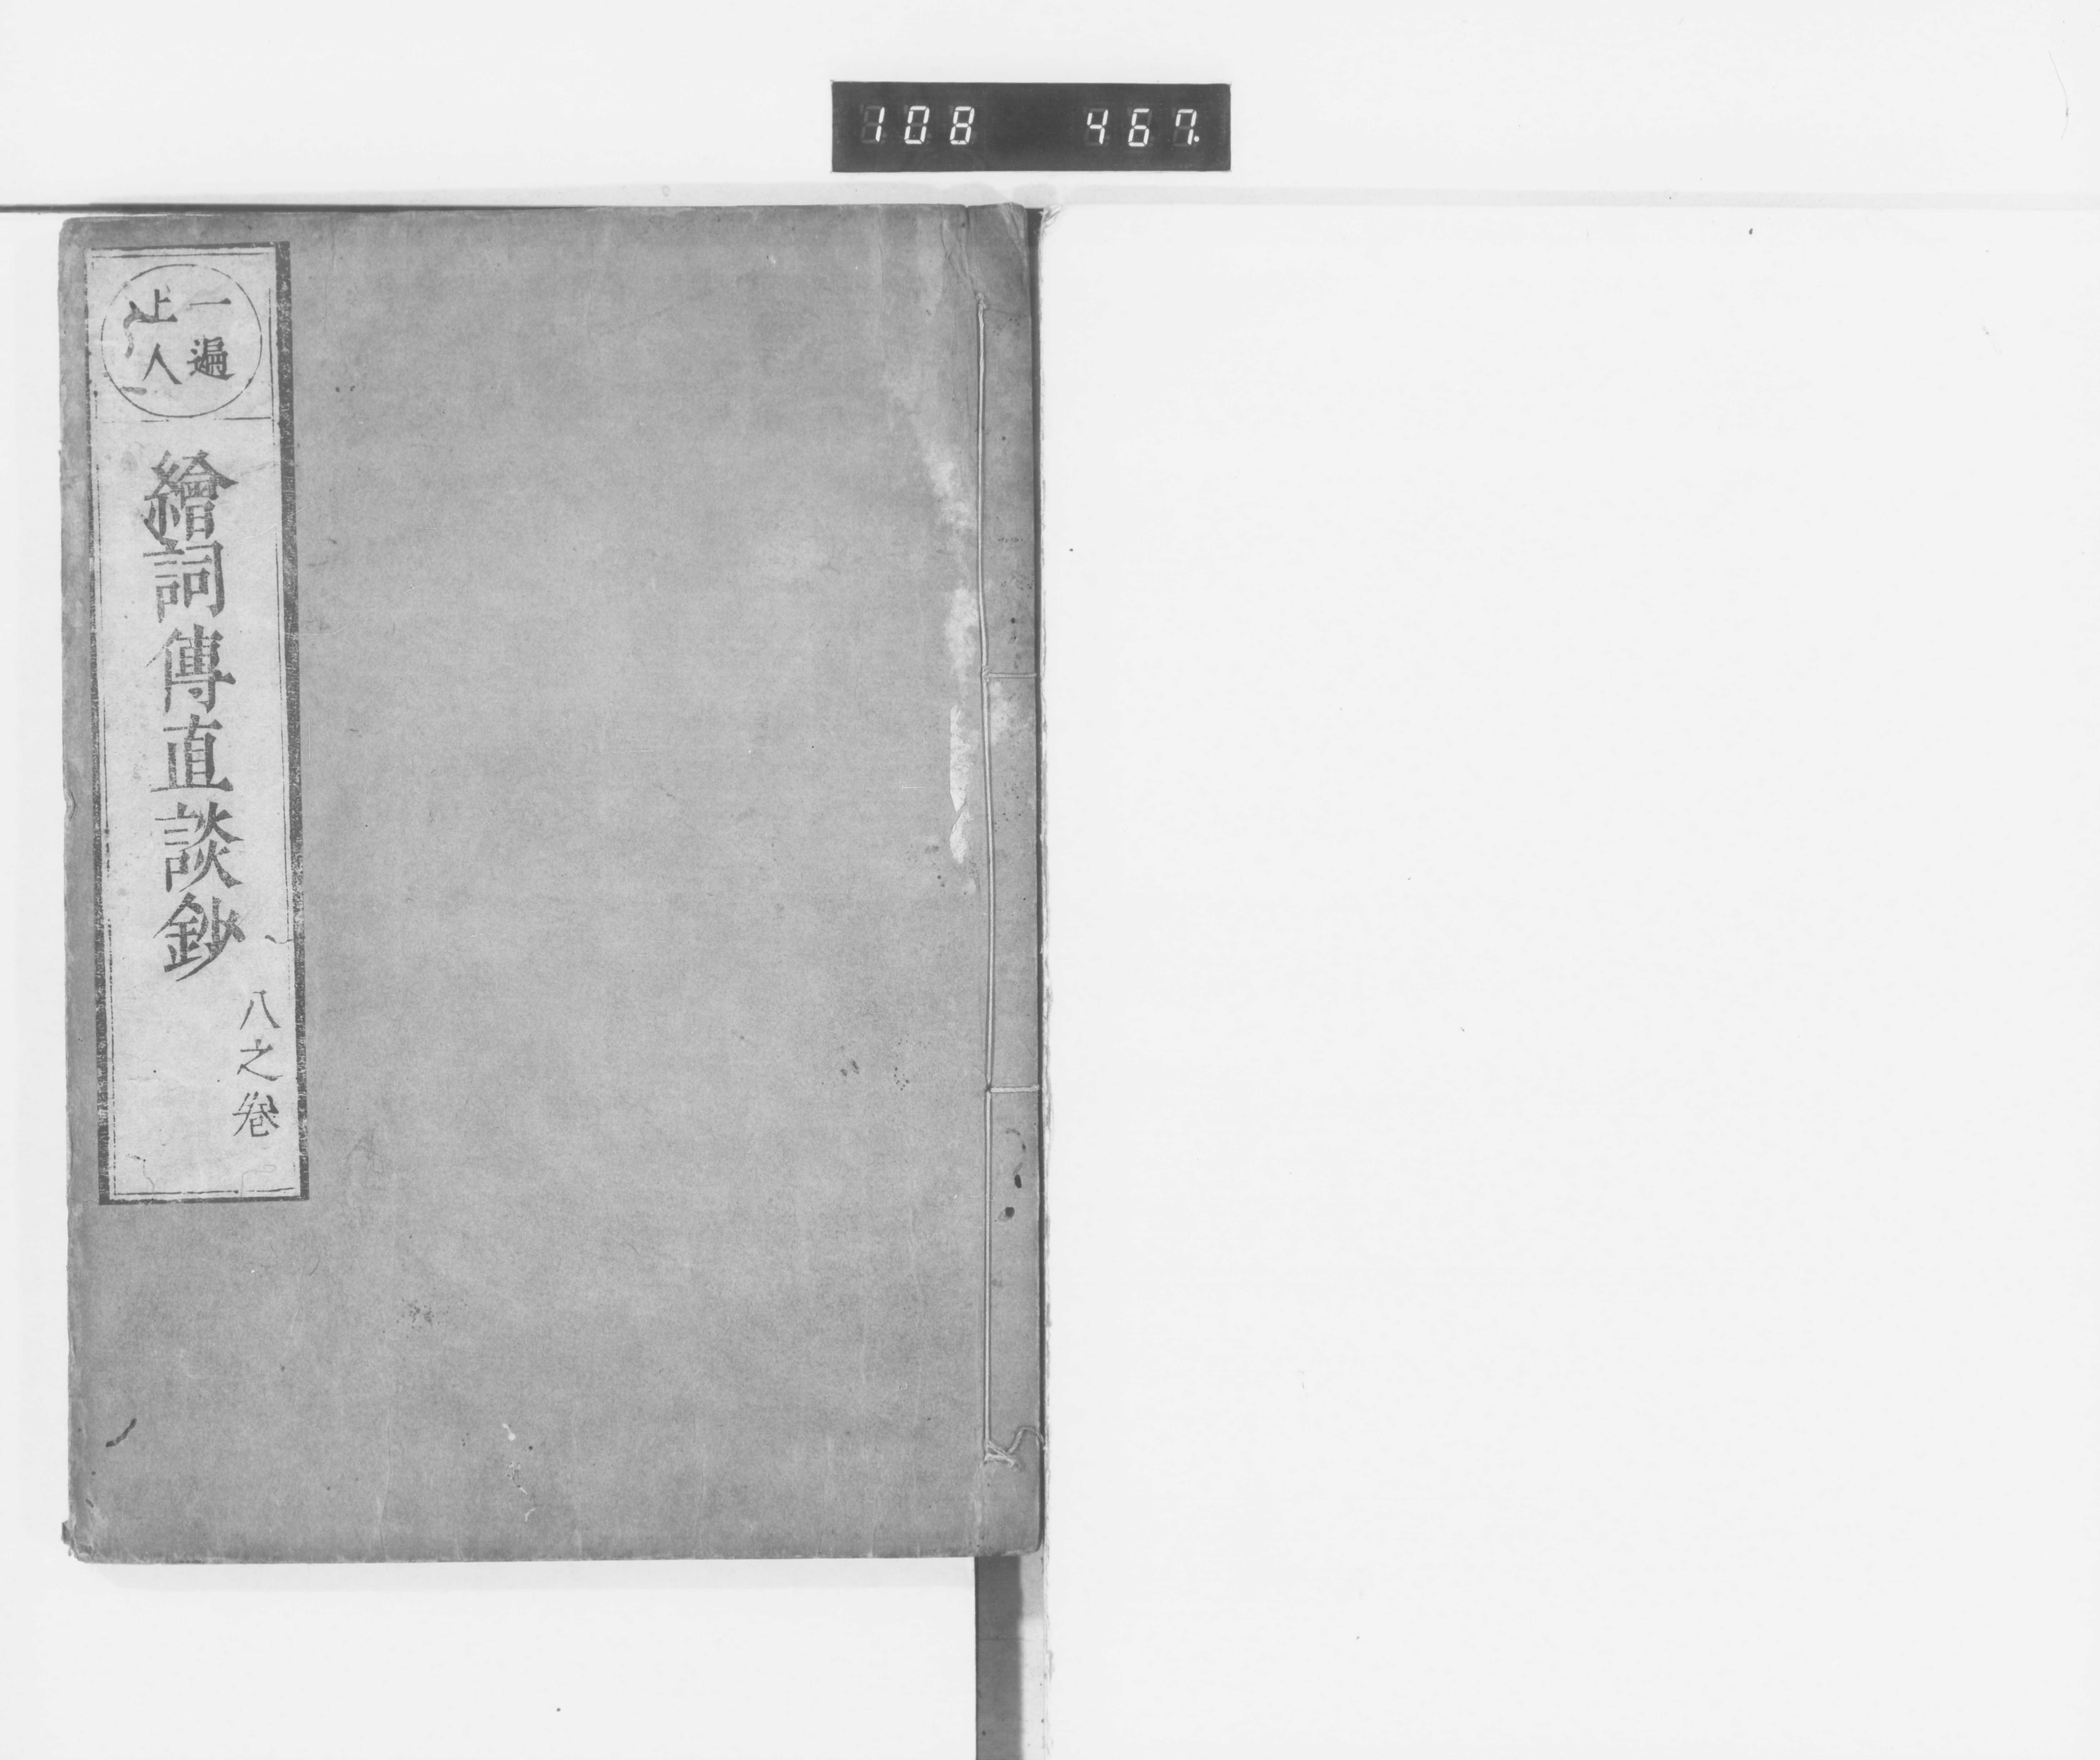 108 467.
一遍
上人
繪詞傳直談鈔
八之卷